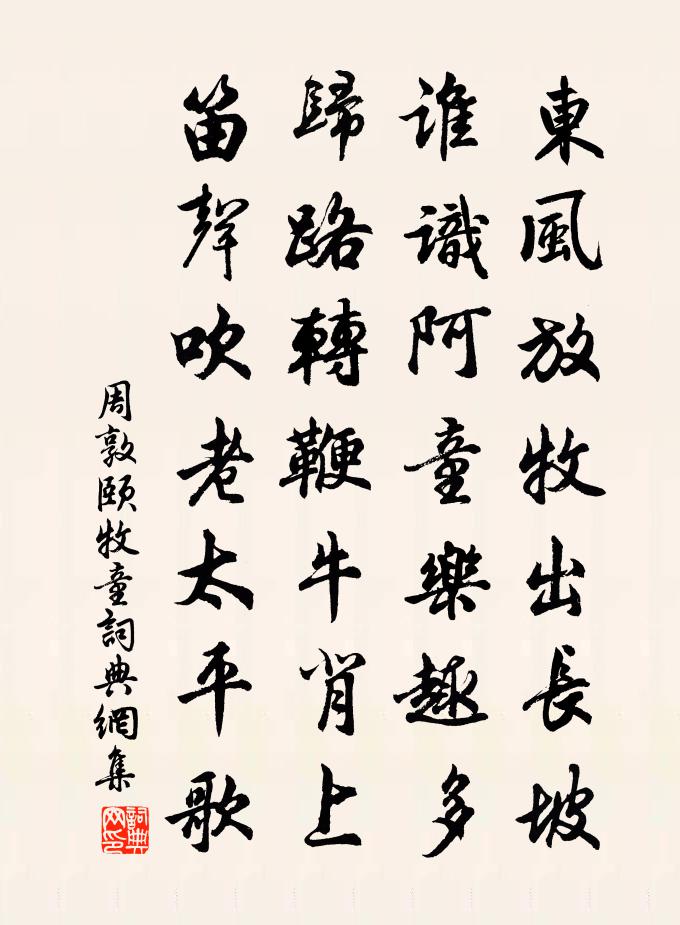 東風放牧出長坡
誰識阿童樂趣多
歸路轉鞭牛背上
笛聲吹老太平歌
周敦頤牧童詞典網集
詞典网印